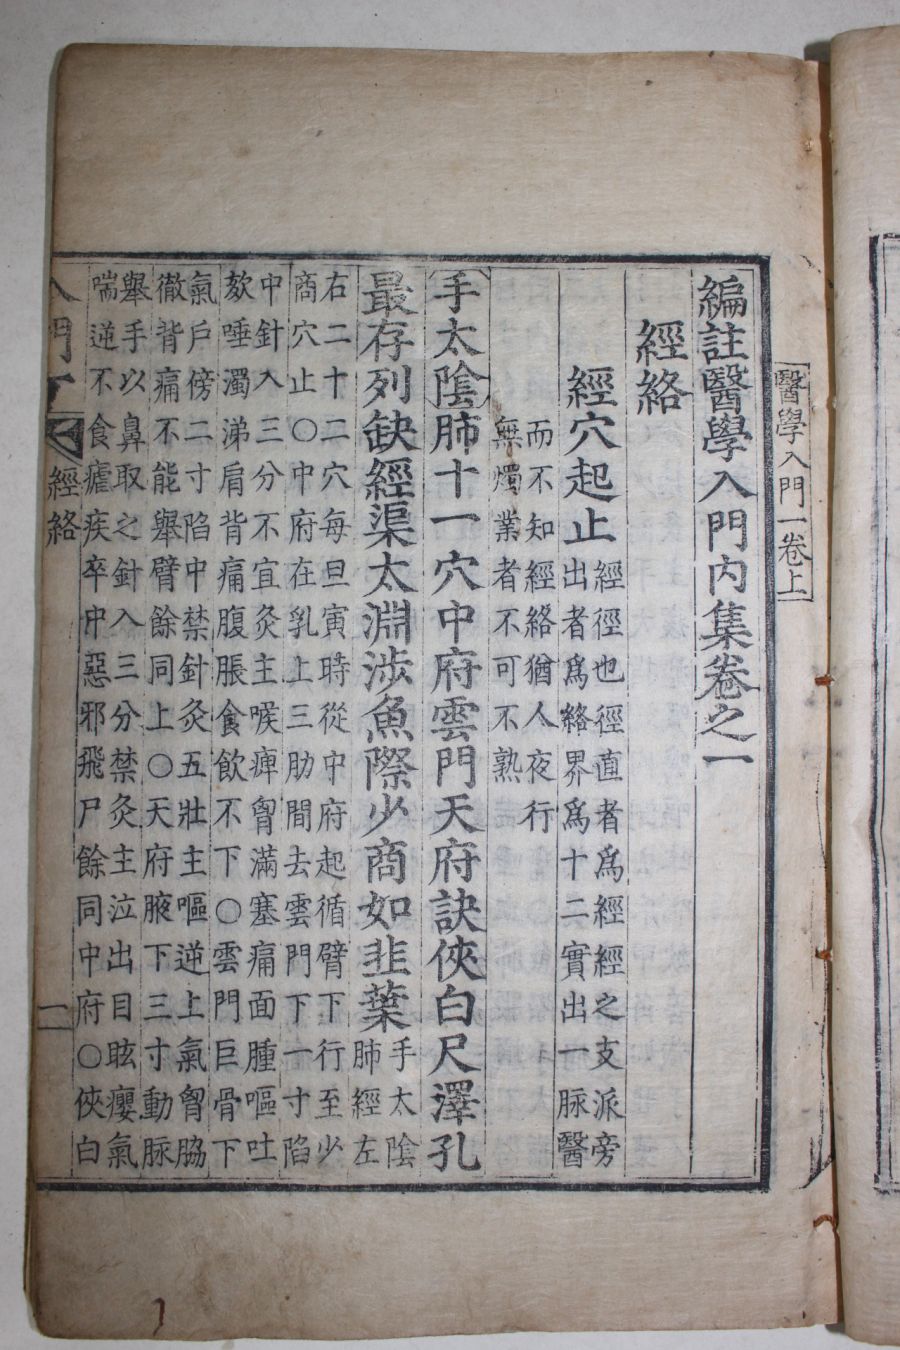 醫學入門一卷上
編註醫學入門內集卷之一
經絡
經穴起止
經徑也徑直者爲經經之支派旁
出者爲絡界爲十二實出一脉醫
而不知經絡猶人夜行
無燭業者不可不熟
手太陰肺十一穴中府雲門天府訣俠白尺澤孔
最存列缺經渠太淵涉魚際少商如韭葉
手太陰
肺經左
右二十二穴每旦寅時從中府起循臂下行至少
商穴止○中府在乳上三肋間去雲門下一寸陷
中針入三分不宜灸主喉痺胷滿塞痛面腫嘔吐
欬唾濁涕肩背痛腹脹食飮不下○雲門巨骨下
氣戶傍二寸陷中禁針灸五壯主嘔逆上氣胷脇
徹背痛不能擧臂餘同上○天府腋下三寸動脉
擧手以鼻取之針入三分禁灸主泣出目眩癭氣
喘逆不食瘧疾卒中惡邪飛尸餘同中府○俠白
入門
經絡
一